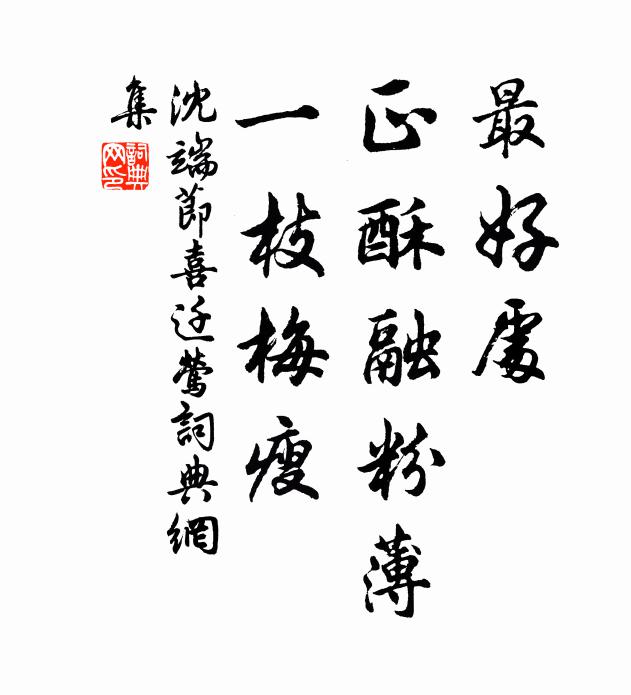 最好處
正酥融粉薄
一枝梅瘦
沈端節喜迁鶯詞典網
集
詞典
网印